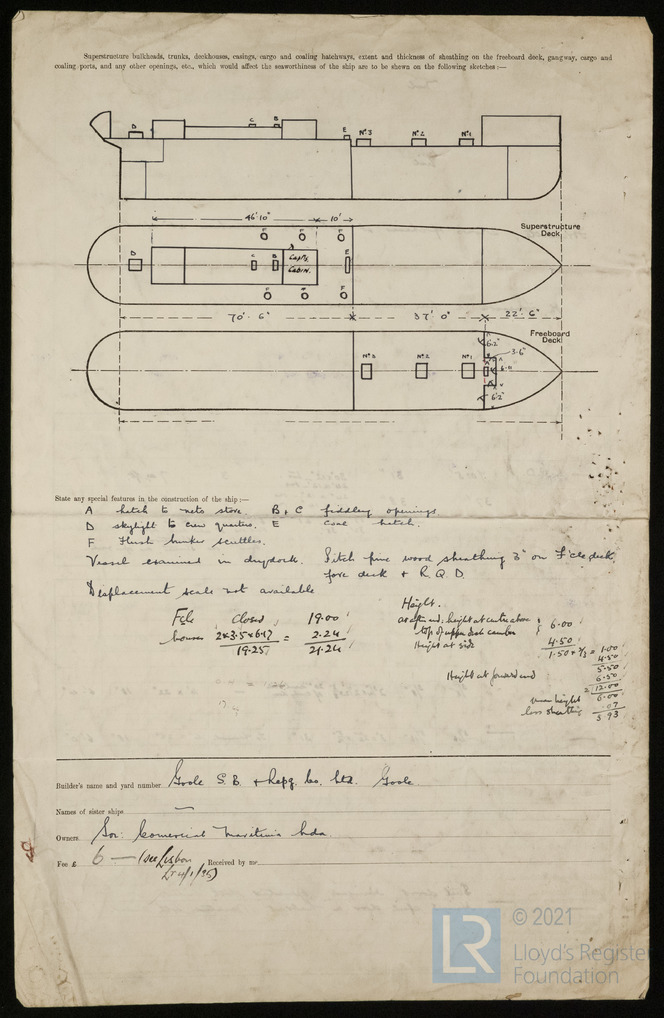 Superstructure bulkheads, trunks, deckhouses, casings, cargo and coaling hatchways, extent and thickness of sheathing on the freeboard deck, gangway, cargo and
coaling ports, and any other openings, etc., which would affect the seaworthiness of the ship are to be shewn on the following sketches :—
D C B E No 3 No 2 No 1
46' 10" 10'
Superstructure
Deck
F F F
D C B A Capt's
Cabin. E
F F F
70' . 6" 37' 0" 22' . 6"
Freeboard
Deck
6'2"
3-6"
No 3 No 2 No 1
6'2"
State any special features in the construction of the ship :—
A hatch to nets store. B & C fiddley openings
D skylight to crew quarters. E coal hatch.
F Flush bunker scuttles.
Vessel examined in drydock. Pitch pine wood sheathing 3" on F'cle deck,
fore deck & R.Q.D.
Displacement scale not available
Fcle closed 19.00
houses 2x3.5x6.17 = 2.24
19.25 21.24
Height.
As after end, height at centre above
top of upper deck camber 6.00
Height at side 4.50
1.50 x 2/3 = 1.00
4.50
5.50
Height at forward end 6.50
= 12.00
mean height 6.00
less sheathing .07
5.93
Builder's name and yard number Goole S.B. & Repg. Co. Ltd. Goole
Names of sister ships —
Owners Soc: Comercial Maritima Lda.
Fee £ 6 — (see Lisbon
LT 4/1/35)
Received by me
© 2021
LR
Lloyd's Register
Foundation